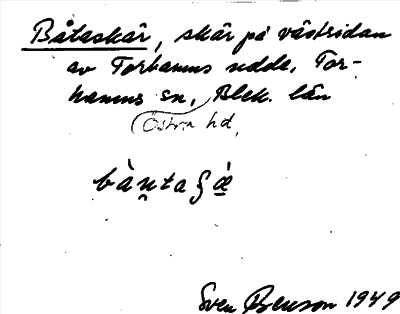 Båtaskär, skär på västsidan
av Torhamns udde, Tor-
hamns sn, Blek. län
Östra hd,
Sven Benson 1949